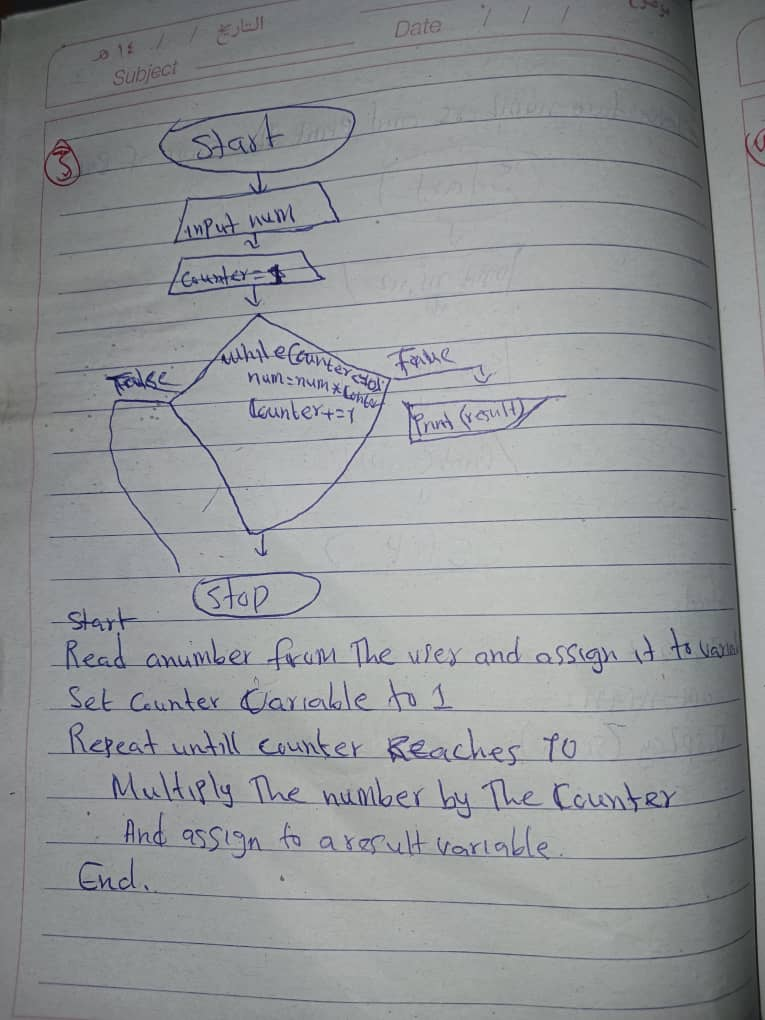 التاريخ / / ١٤ هـ
Date / / /
Subject
3
Start
input num
Counter=
while Counter
False
False
num=num*Conter
Counter+=1
Print (result)
Stop
Start
Read anumber from The user and assign it to
Set Counter Variable to 1
Repeat untill counter Reaches 10
Multiply The number by The Counter
And assign to a result variable.
End.